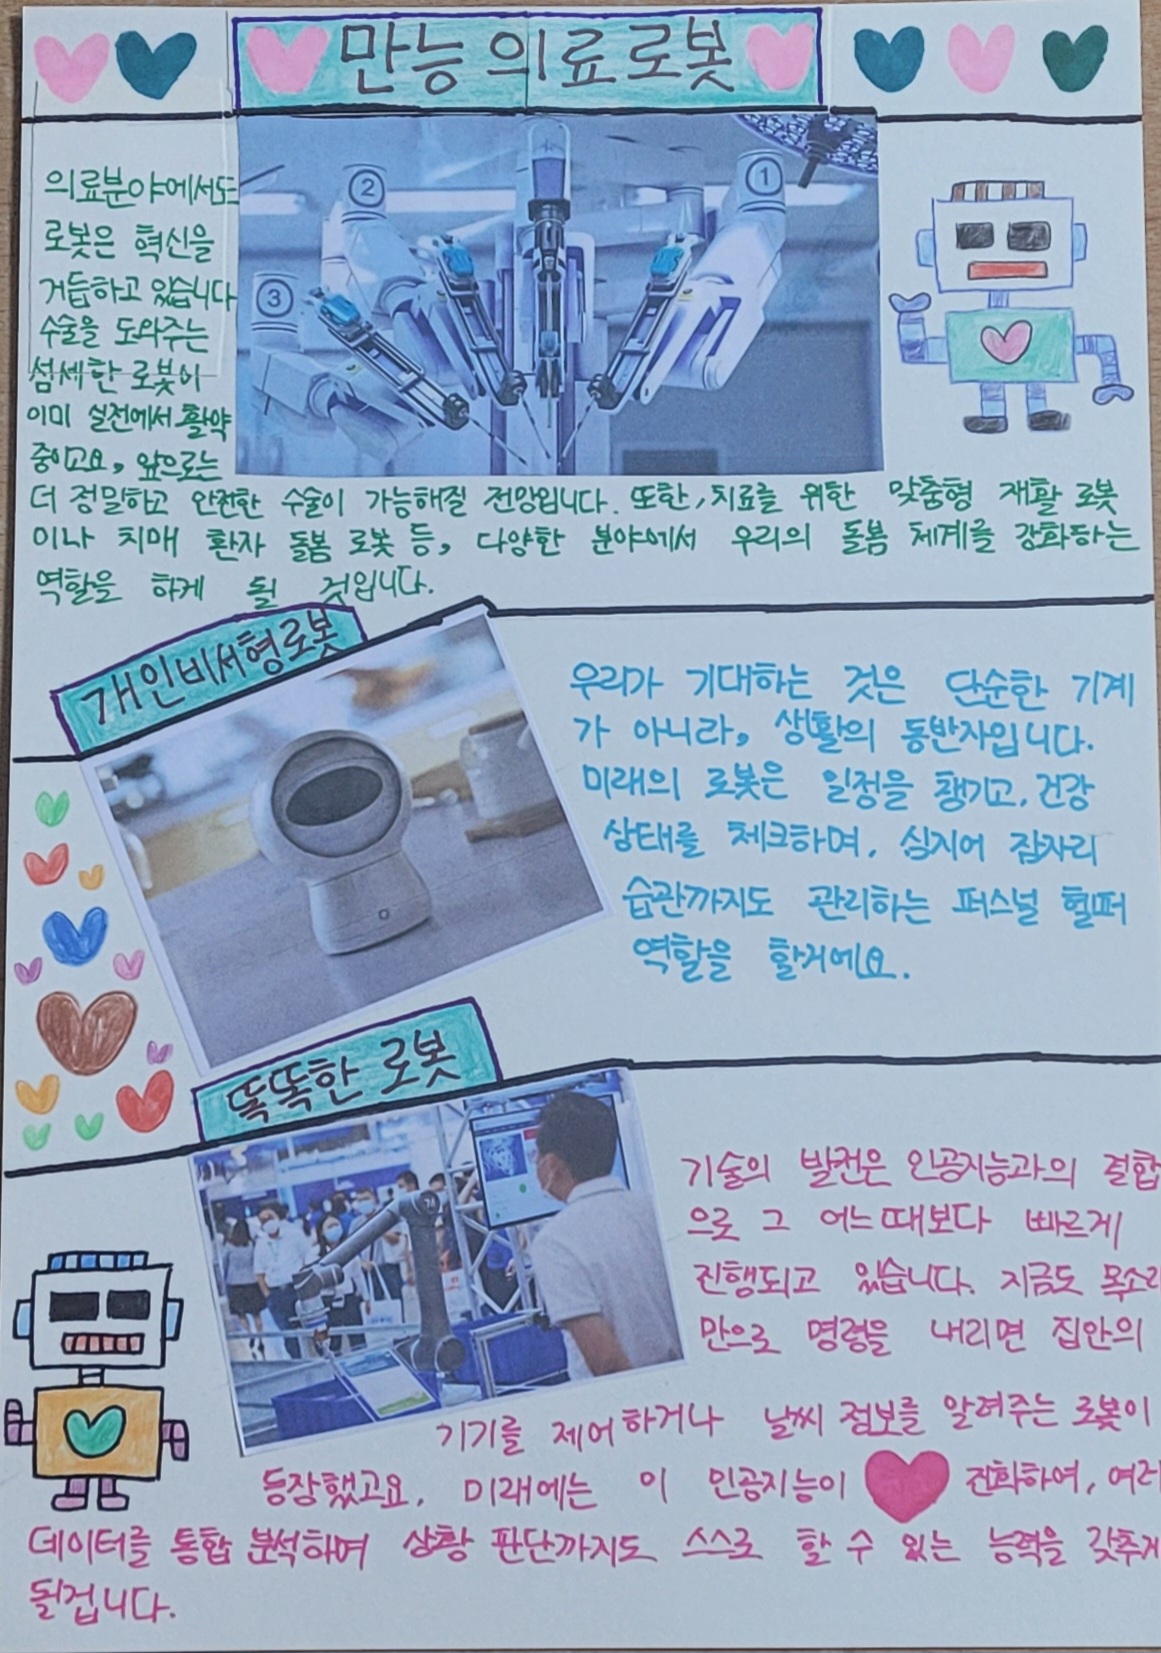 만능 의료 로봇
의료분야에서도
로봇은 혁신을
거듭하고 있습니다
수술을 도와주는
섬세한 로봇이
이미 실전에서 활약
중이고요, 앞으로는
더 정밀하고 안전한 수술이 가능해질 전망입니다. 또한, 치료를 위한 맞춤형 재활 로봇
이나 치매 환자 돌봄 로봇 등, 다양한 분야에서 우리의 돌봄 체계를 강화하는
역할을 하게 될 것입니다.
②
①
③
개인비서형로봇
우리가 기대하는 것은 단순한 기계
가 아니라, 생활의 동반자입니다.
미래의 로봇은 일정을 챙기고, 건강
상태를 체크하며, 심지어 잠자리
습관까지도 관리하는 퍼스널 헬퍼
역할을 할거에요.
똑똑한 로봇
기술의 발전은 인공지능과의 결합
으로 그 어느때보다 빠르게
진행되고 있습니다. 지금도 목소리
만으로 명령을 내리면 집안의
기기를 제어하거나 날씨 정보를 알려주는 로봇이
등장했고요, 미래에는 이 인공지능이 진화하여, 여러
데이터를 통합 분석하여 상황 판단까지도 스스로 할 수 있는 능력을 갖추게
될겁니다.